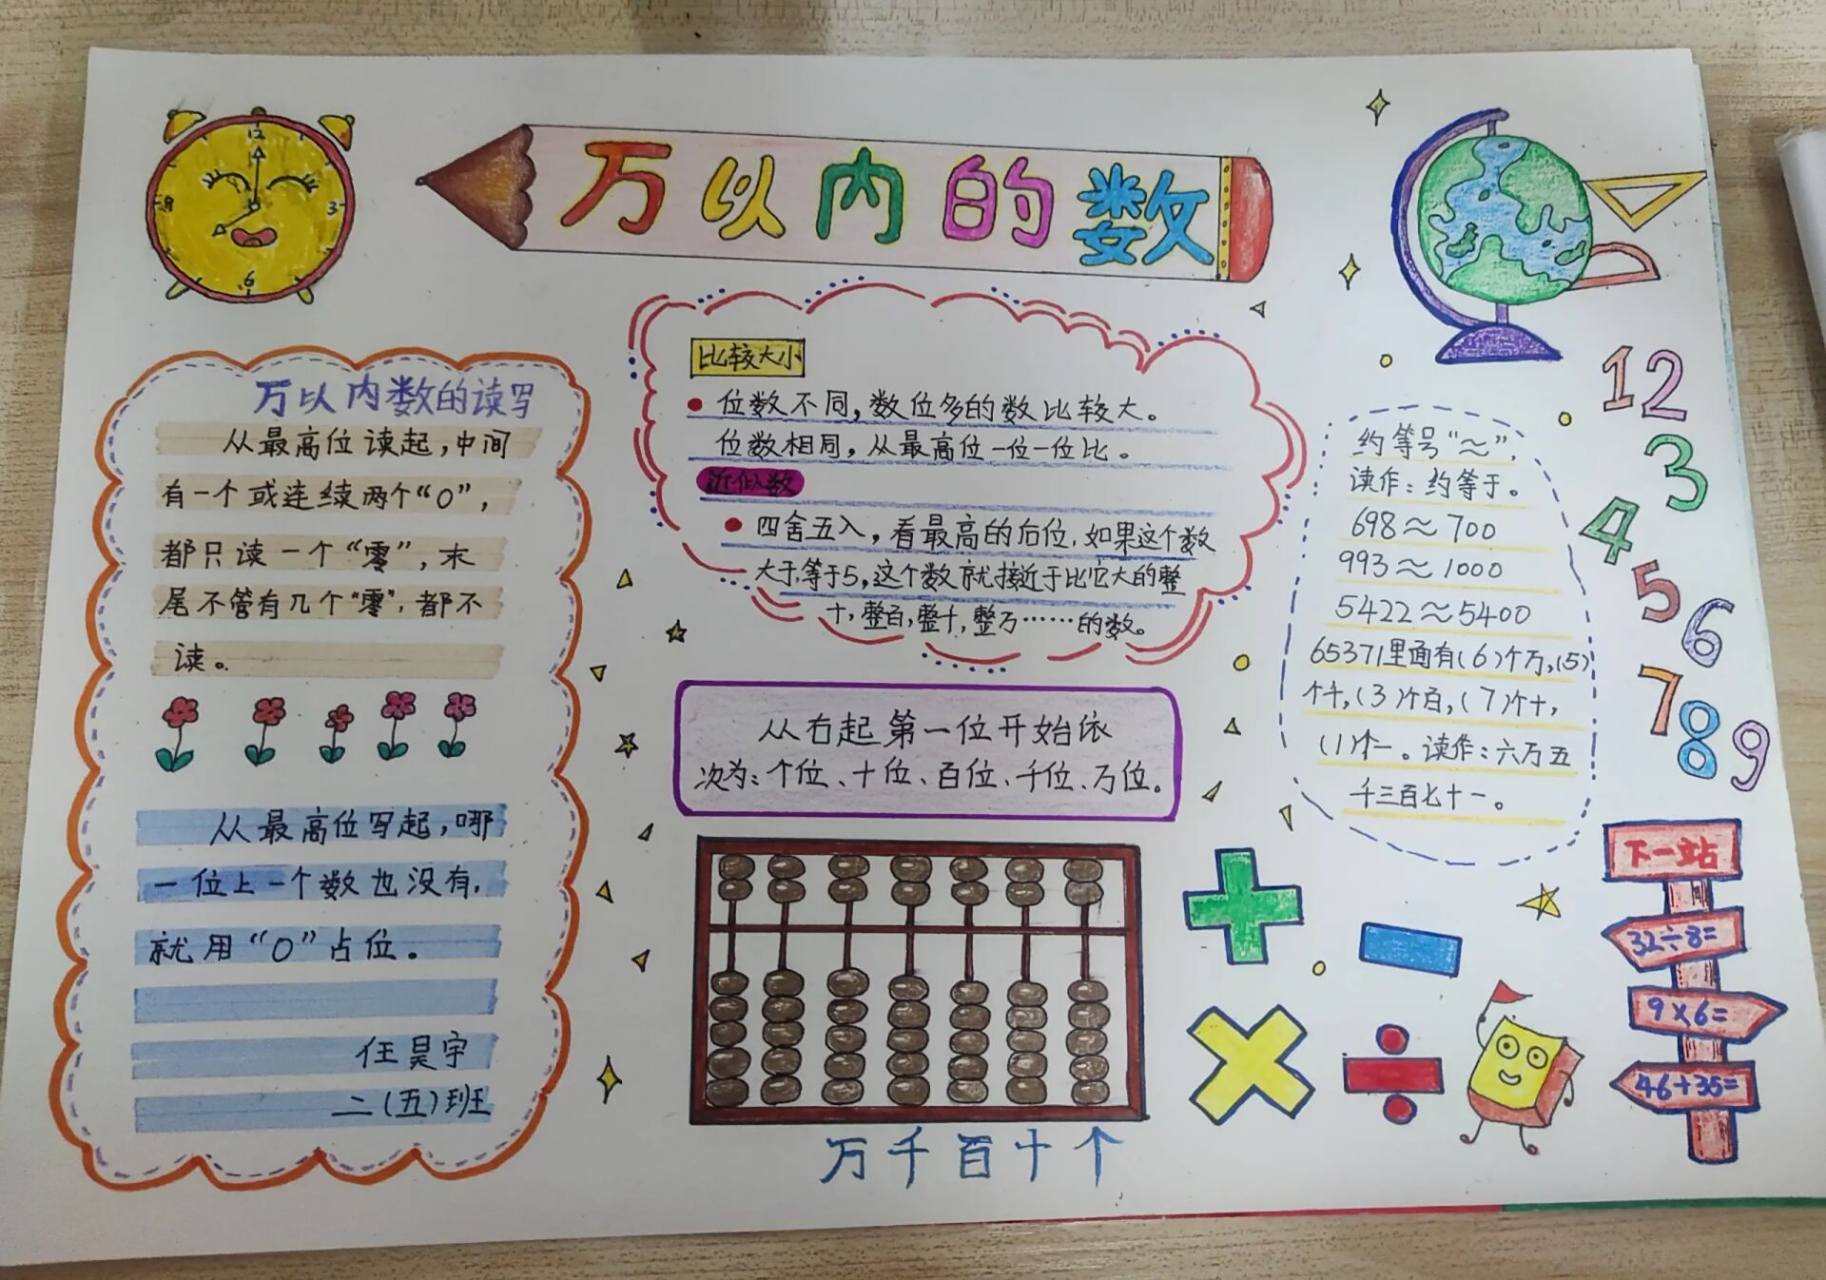 万以内的数
12
3
6
9
万以内数的读写
从最高位读起，中间
有一个或连续两个“0”，
都只读一个“零”，末
尾不管有几个“零”，都不
读。
从最高位写起，哪
一位上一个数也没有，
就用“0”占位。
任昊宇
二（五）班
比较大小
位数不同，数位多的数比较大。
位数相同，从最高位一位一位比。
近似数
四舍五入，看最高的后位，如果这个数
大于等于5，这个数就接近于比它大的整
十，整百，整十，整万……的数。
从右起第一位开始依
次为：个位、十位、百位、千位、万位。
万千百十个
约等号“≈”，
读作：约等于。
698≈700
993≈1000
5422≈5400
65371里面有（6）个万，（5）
个千，（3）个百，（7）个十，
（1）个一。读作：六万五
千三百七十一。
12
3
4
5
6
7
8
9
下一站
32÷8=
9×6=
46+35=